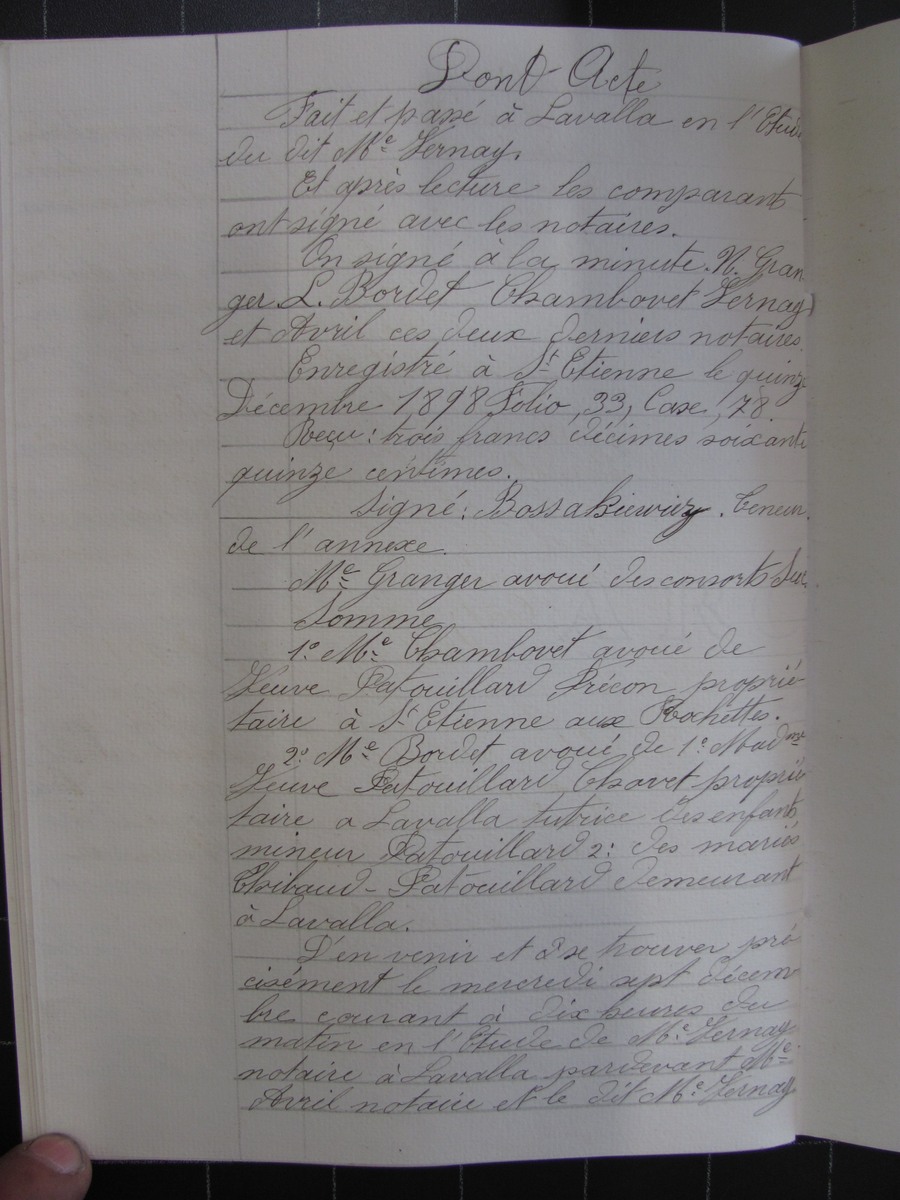 Dont Acte
Fait et passé à Lavalla en l'Etude
du dit Me Vernay.
Et après lecture les comparant
ont signé avec les notaires.
On signé à la minute. N. Gran
ger L. Bordet Chambovet Vernay
et Avril ces deux derniers notaires.
Enregistré à St Etienne le quinze
Décembre 1898 Folio, 33, Case, 78.
Reçu: trois francs décimes soixante
quinze centimes.
Signé: Bossakiewiez. Teneur
de l'annexe.
Me Granger avoué des consorts
Somme
1º Me Chambovet avoué de
Veuve Patouillard Frécon proprié
taire à St Etienne aux Rochettes.
2º Me Bordet avoué de 1º Madme
Veuve Patouillard Chavet proprié
taire a Lavalla tutrice des enfants
mineur Patouillard 2: des mariés
Thibaud-Patouillard demeurant
à Lavalla.
D'en venir et se trouver pré
cisément le mercredi sept décem
bre courant à dix heures du
matin en l'Etude de Me Vernay
notaire à Lavalla pardevant Me
Avril notaire et le dit Me Vernay